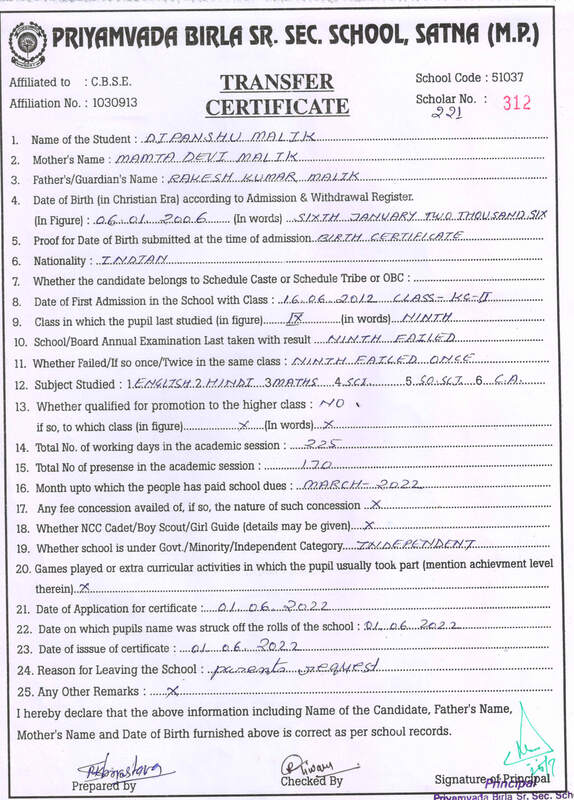 PRIYAMVADA BIRLA SR. SEC. SCHOOL, SATNA (M.P.)
Affiliated to : C.B.S.E. TRANSFER School Code : 51037
Affiliation No. : 1030913 CERTIFICATE Scholar No. : 312
221
1. Name of the Student : DIPANSHU MALIK
2. Mother's Name : MAMTA DEVI MALIK
3. Father's/Guardian's Name : RAKESH KUMAR MALIK
4. Date of Birth (in Christian Era) according to Admission & Withdrawal Register.
(In Figure) : 06.01.2006 (In words) SIXTH JANUARY TWO THOUSAND SIX
5. Proof for Date of Birth submitted at the time of admission BIRTH CERTIFICATE
6. Nationality : INDIAN
7. Whether the candidate belongs to Schedule Caste or Schedule Tribe or OBC :
8. Date of First Admission in the School with Class : 16.06.2012 CLASS-KG-II
9. Class in which the pupil last studied (in figure) IX (in words) NINTH
10. School/Board Annual Examination Last taken with result NINTH FAILED
11. Whether Failed/If so once/Twice in the same class : NINTH FAILED ONCE
12. Subject Studied : 1. ENGLISH 2. HINDI 3 MATHS 4. SCI. 5. SO.SCI 6. C.A.
13. Whether qualified for promotion to the higher class : NO.
if so, to which class (in figure) X (In words) X
14. Total No. of working days in the academic session : 225
15. Total No of presense in the academic session : 170
16. Month upto which the people has paid school dues : MARCH-2022
17. Any fee concession availed of, if so, the nature of such concession X
18. Whether NCC Cadet/Boy Scout/Girl Guide (details may be given) X
19. Whether school is under Govt./Minority/Independent Category INDEPENDENT
20. Games played or extra curricular activities in which the pupil usually took part (mention achievment level
therein) X
21. Date of Application for certificate : 01.06.2022
22. Date on which pupils name was struck off the rolls of the school : 01.06.2022
23. Date of isssue of certificate : 01.06.2022
24. Reason for Leaving the School : parents request
25. Any Other Remarks : X
I hereby declare that the above information including Name of the Candidate, Father's Name,
Mother's Name and Date of Birth furnished above is correct as per school records.
Prepared by Checked By Signature of Principal
Principal
Priyamvada Birla Sr. Sec. Sch